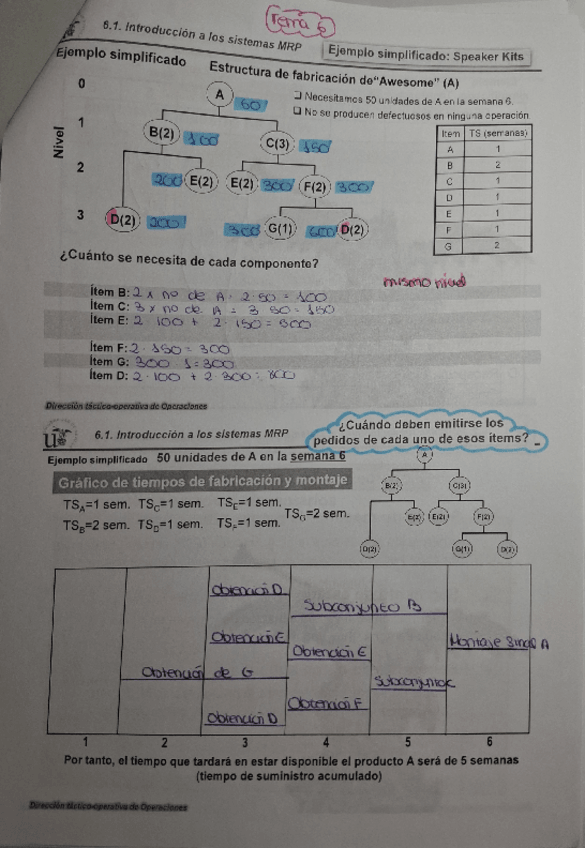 Tema 6
6.1. Introducción a los sistemas MRP
Ejemplo simplificado: Speaker Kits
Ejemplo simplificado
Estructura de fabricación de "Awesome" (A)
❑ Necesitamos 50 unidades de A en la semana 6.
❑ No se producen defectuosos en ninguna operación
Nivel
0
A
50
1
B(2) 100 C(3) 150
2
200 E(2) E(2) 300 F(2) 300
3
D(2) 200 300 G(1) 600 D(2)
Ítem TS (semanas)
A 1
B 2
C 1
D 1
E 1
F 1
G 2
¿Cuánto se necesita de cada componente?
mismo nivel
Ítem B: 2 x no de A = 2·50 = 100
Ítem C: 3 x no de A = 3·50 = 150
Ítem E: 2·100 + 2·150 = 500
Ítem F: 2·150 = 300
Ítem G: 300·1 = 300
Ítem D: 2·100 + 2·300 = 800
Dirección táctico-operativa de Operaciones
6.1. Introducción a los sistemas MRP
¿Cuándo deben emitirse los
pedidos de cada uno de esos ítems?
Ejemplo simplificado 50 unidades de A en la semana 6
Gráfico de tiempos de fabricación y montaje
TSA=1 sem. TSC=1 sem. TSE=1 sem.
TSG=2 sem.
TSB=2 sem. TSD=1 sem. TSF=1 sem.
A
B(2) C(3)
E(2) E(2) F(2)
D(2) G(1) D(2)
Obtención D
Subconjunto B
Obtención E
Montaje final A
Obtención E
Obtención de G
Subconjunto C
Obtención F
Obtención D
1 2 3 4 5 6
Por tanto, el tiempo que tardará en estar disponible el producto A será de 5 semanas
(tiempo de suministro acumulado)
Dirección táctico-operativa de Operaciones